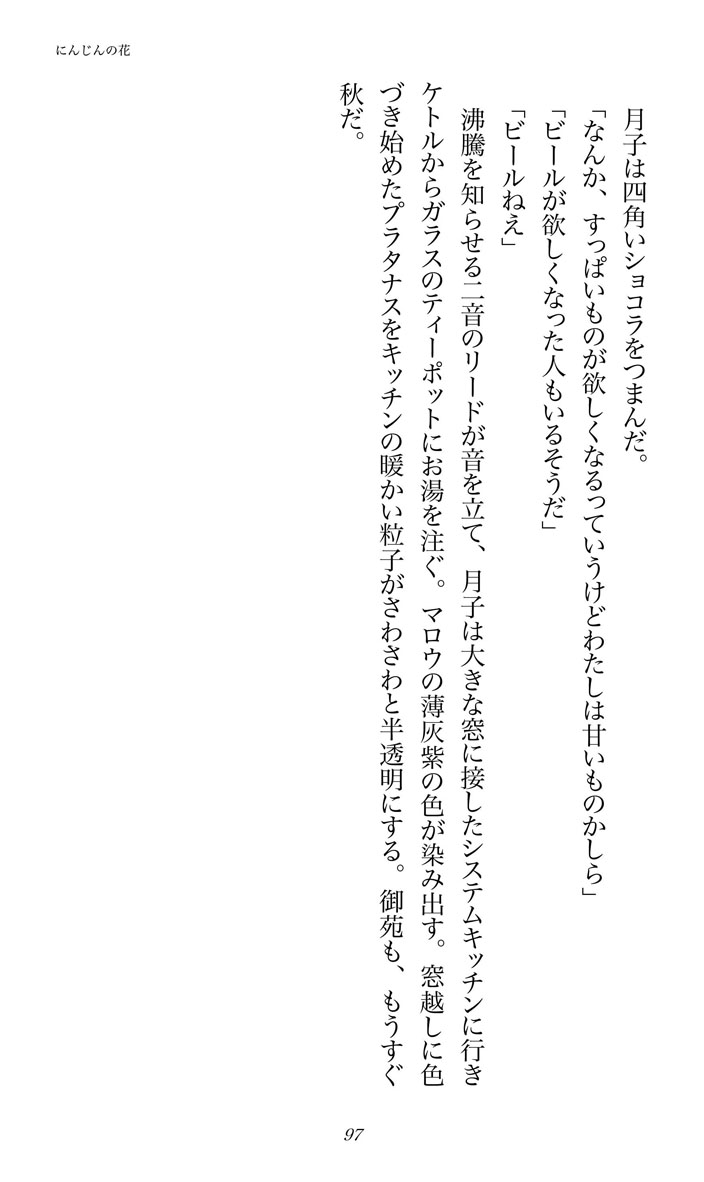 にんじんの花
月子は四角いショコラをつまんだ。
「なんか、すっぱいものが欲しくなるっていうけどわたしは甘いものかしら」
「ビールが欲しくなった人もいるそうだ」
「ビールねえ」
沸騰を知らせる二音のリードが音を立て、月子は大きな窓に接したシステムキッチンに行き
ケトルからガラスのティーポットにお湯を注ぐ。マロウの薄灰紫の色が染み出す。窓越しに色
づき始めたプラタナスをキッチンの暖かい粒子がさわさわと半透明にする。御苑も、もうすぐ
秋だ。
97